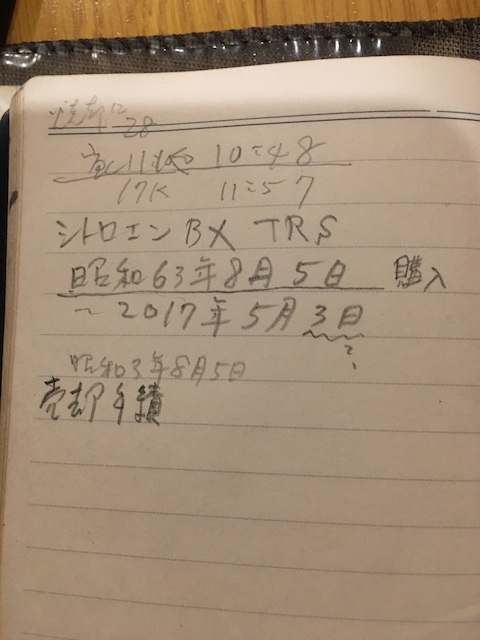 28
10:48
17K 11:57
シトロエン BX TRS
昭和63年8月5日 購入
~2017年5月3日
?
昭和3年8月5日
売却手續